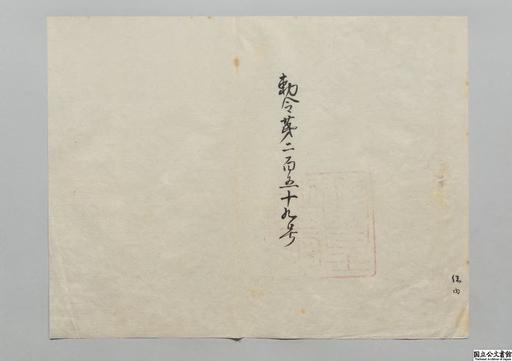 勅令第二百五十九号
国立公文書館
National Archives of Japan